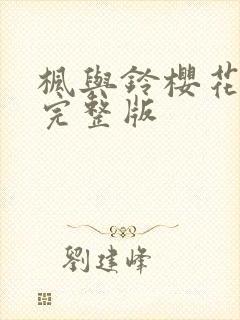 楓與鈴櫻花
完整版
劉建峰